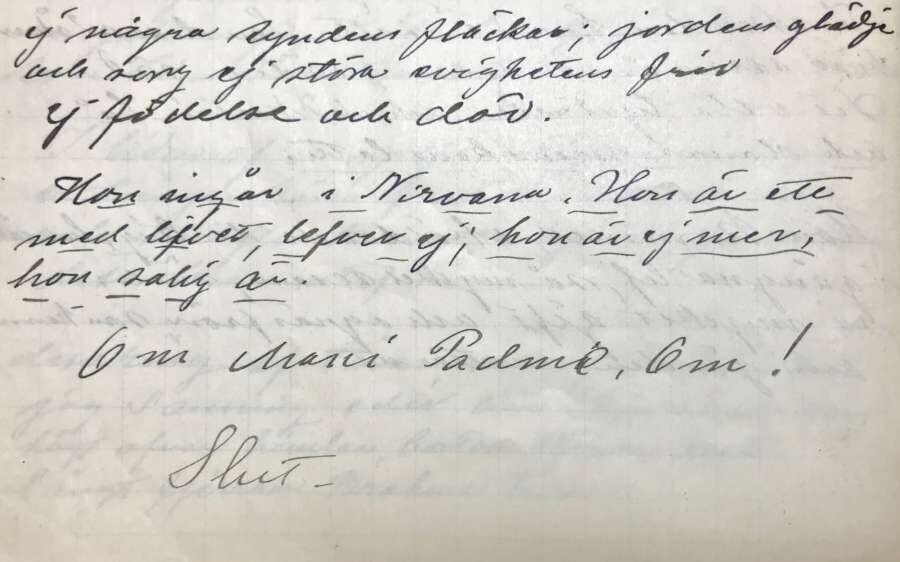 ej några syndens fläckar; jordens glädje
och sorg ej störa evighetens frid
ej födelse och död.
Hon ingår i Nirvana. Hon är ett
med lifvet, lefver ej; hon är ej mer,
hon salig är.
Om Mani Padmè, Om!
Slut_